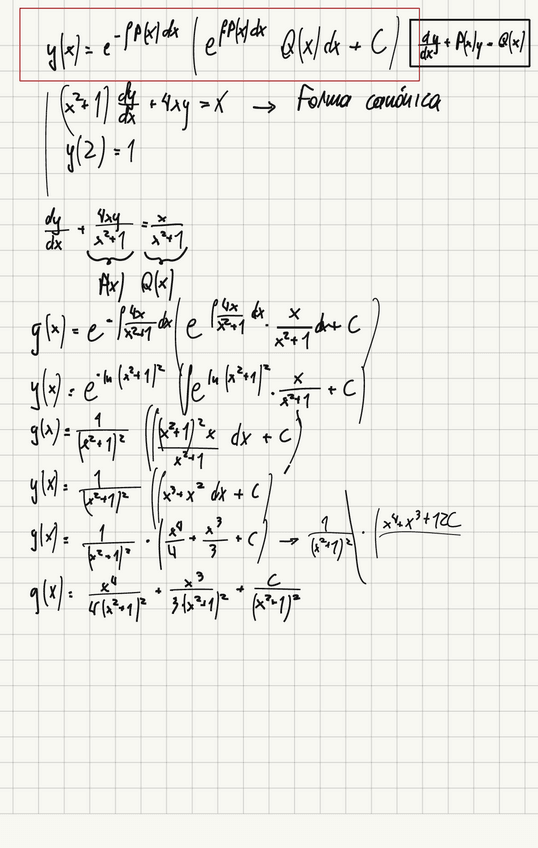 y(x) = e^{-∫P(x)dx} (e^{∫P(x)dx} Q(x)dx + C) dy/dx + P(x)y = Q(x)
(x²+1) dy/dx + 4xy = x → Forma canónica
y(2) = 1
dy/dx + 4xy/(x²+1) = x/(x²+1)
P(x) Q(x)
y(x) = e^{-∫4x/(x²+1) dx} (e^{∫4x/(x²+1) dx} · x/(x²+1) dx + C)
y(x) = e^{-ln(x²+1)²} (∫e^{ln(x²+1)²} · x/(x²+1) + C)
y(x) = 1/(x²+1)² (∫(x²+1)²x/(x²+1) dx + C)
y(x) = 1/(x²+1)² (∫x³+x² dx + C)
y(x) = 1/(x²+1)² · (x⁴/4 + x³/3 + C) → 1/(x²+1)² · (x⁴+x³+12C
y(x) = x⁴/4(x²+1)² + x³/3(x²+1)² + C/(x²+1)²